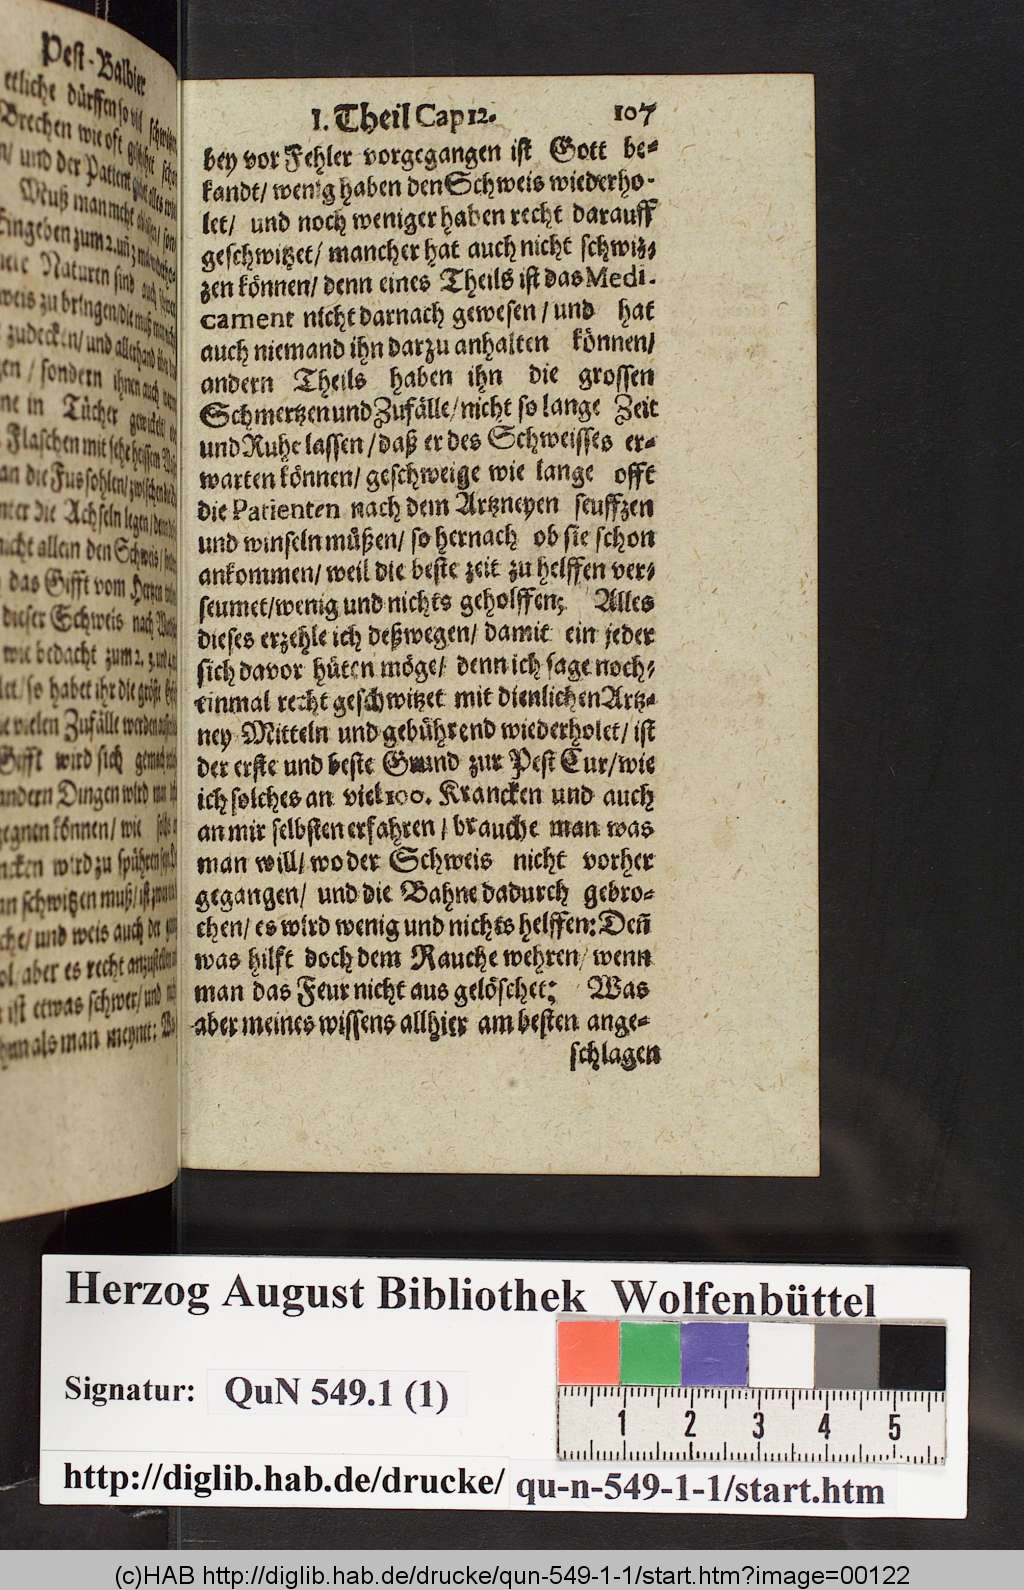 Pest-Balbier
etliche dürffen so viel
Brechen wie oft
und der Patient
Muß man nicht
Eingeben zum 2. uñ 3
Naturen sind auch
zu bringen/ die muß
zudecken/ und allerhand
sondern ihnen auch
in Tücher
Flaschen mit sehr heissem
an die Fussohlen/ zwischen
die Achseln legen/
nicht allein den Schweis/
das Gifft vom Hertzen
dieser Schweis nach
wie bedacht zum 2. 3. und
so habet ihr die gröste
vielen Zufälle werden
Gifft wird sich
andern Dingen wird
können/ wie
wird zu spühren
schwitzen muß/ ist
und weis auch der
aber es recht anzustellen
ist etwas schwer/ und
als man meynt:
I. Theil Cap 12. 107
bey vor Fehler vorgegangen ist Gott be-
kandt/ wenig haben den Schweis wiederho-
let/ und noch weniger haben recht darauff
geschwitzet/ mancher hat auch nicht schwiz-
zen können/ denn eines Theils ist das Medi-
cament nicht darnach gewesen/ und hat
auch niemand ihn darzu anhalten können/
andern Theils haben ihn die grossen
Schmertzen und Zufälle/ nicht so lange Zeit
und Ruhe lassen/ daß er des Schweisses er-
warten können/ geschweige wie lange offt
die Patienten nach dem Artzneyen seuffzen
und winseln müßen/ so hernach ob sie schon
ankommen/ weil die beste zeit zu helffen ver-
seumet/ wenig und nichts geholffen; Alles
dieses erzehle ich deßwegen/ damit ein jeder
sich davor hüten möge/ denn ich sage noch-
einmal recht geschwitzet mit dienlichen Artz-
ney Mitteln und gebührend wiederholet/ ist
der erste und beste Grund zur Pest Cur/ wie
ich solches an viel 100. Krancken und auch
an mir selbsten erfahren/ brauche man was
man will/ wo der Schweis nicht vorher
gegangen/ und die Bahne dadurch gebro-
chen/ es wird wenig und nichts helffen: Deñ
was hilft doch dem Rauche wehren/ wenn
man das Feur nicht aus gelöschet; Was
aber meines wissens allhier am besten ange-
schlagen
Herzog August Bibliothek Wolfenbüttel
Signatur: QuN 549.1 (1)
1 2 3 4 5
http://diglib.hab.de/drucke/ qu-n-549-1-1/start.htm
(c)HAB http://diglib.hab.de/drucke/qun-549-1-1/start.htm?image=00122